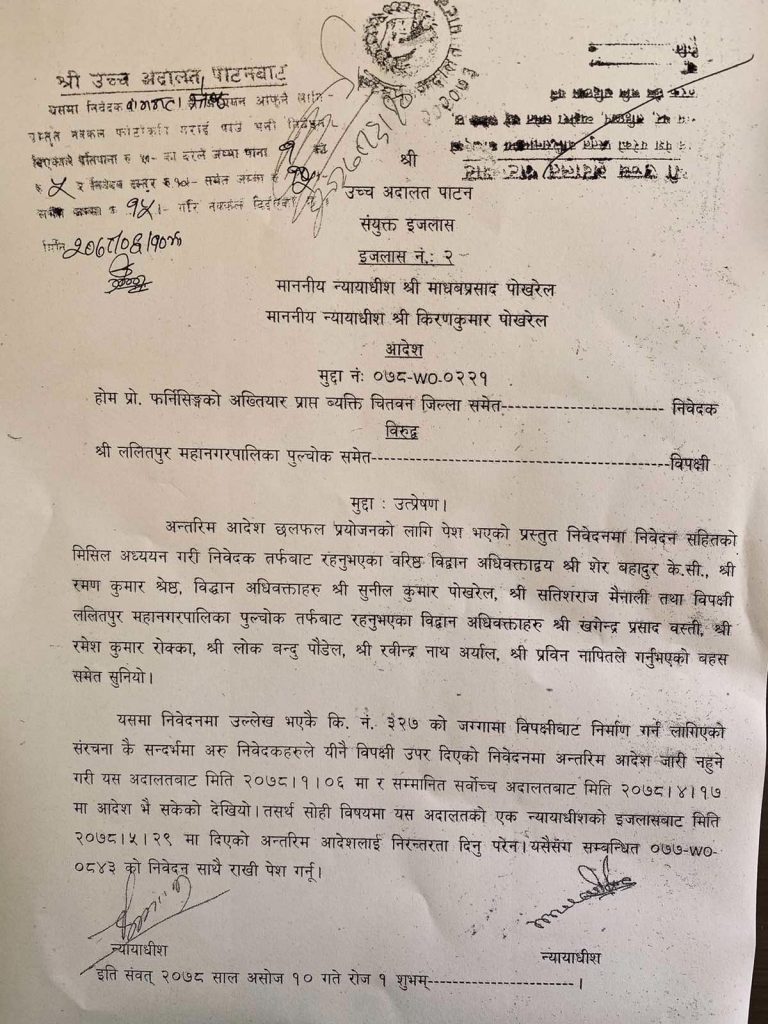 श्री उच्च अदालत पाटनबाट
यसमा निवेदक
नक्कल फोटोकपी गराई पाउँ भनी
दरले जम्मा पाना १
रु ५ र निवेदन दस्तुर रु १०।- समेत जम्मा रु १५।-
जम्मा रु १५।- गरि नक्कल दिईएको
मिति २०७८।०६।१०
अदालत
२०७३
श्री
उच्च अदालत पाटन
संयुक्त इजलास
इजलास नं.: २
माननीय न्यायाधीश श्री माधवप्रसाद पोखरेल
माननीय न्यायाधीश श्री किरणकुमार पोखरेल
आदेश
मुद्दा नं: ०७८-WO-०२२१
होम प्रो. फर्निसिङ्गको अख्तियार प्राप्त ब्यक्ति चितवन जिल्ला समेत------------------------- निवेदक
विरुद्ध
श्री ललितपुर महानगरपालिका पुल्चोक समेत---------------------------------------------विपक्षी
मुद्दा : उत्प्रेषण।
अन्तरिम आदेश छलफल प्रयोजनको लागि पेश भएको प्रस्तुत निवेदनमा निवेदन सहितको
मिसिल अध्ययन गरी निवेदक तर्फबाट रहनुभएका वरिष्ठ विद्वान अधिवक्ताद्वय श्री शेर बहादुर के.सी., श्री
रमण कुमार श्रेष्ठ, विद्धान अधिवक्ताहरु श्री सुनील कुमार पोखरेल, श्री सतिशराज मैनाली तथा विपक्षी
ललितपुर महानगरपालिका पुल्चोक तर्फबाट रहनुभएका विद्वान अधिवक्ताहरु श्री खगेन्द्र प्रसाद वस्ती, श्री
रमेश कुमार रोक्का, श्री लोक बन्दु पौडेल, श्री रवीन्द्र नाथ अर्याल, श्री प्रविन नापितले गर्नुभएको बहस
समेत सुनियो।
यसमा निवेदनमा उल्लेख भएकै कि. नं. ३२७ को जग्गामा विपक्षीबाट निर्माण गर्न लागिएको
संरचना कै सन्दर्भमा अरु निवेदकहरुले यीनै विपक्षी उपर दिएको निवेदनमा अन्तरिम आदेश जारी नहुने
गरी यस अदालतबाट मिति २०७८।१।०६ मा र सम्मानित सर्वोच्च अदालतबाट मिति २०७८।४।१७
मा आदेश भै सकेको देखियो। तसर्थ सोही विषयमा यस अदालतको एक न्यायाधीशको इजलासबाट मिति
२०७८।५।२९ मा दिएको अन्तरिम आदेशलाई निरन्तरता दिनु परेन। यसैसंग सम्बन्धित ०७७-WO-
०८४३ को निवेदन साथै राखी पेश गर्नू।
न्यायाधीश
न्यायाधीश
इति संवत् २०७८ साल असोज १० गते रोज १ शुभम्-----------------------।